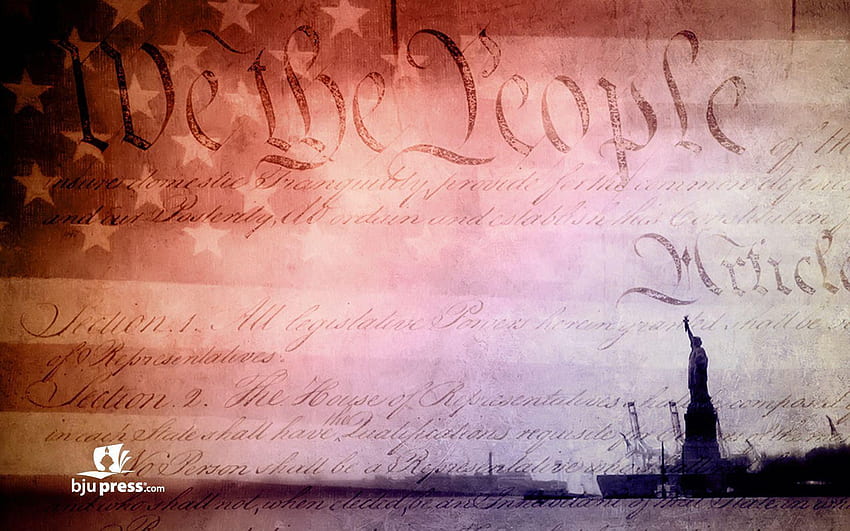 We the People
of th
insure domestic Tranquility, provide for the common defence
and our Posterity, do ordain and establish this Constitution
Article
Section. 1. All legislative Powers herein granted shall be
of Representatives.
Section. 2. The House of Representatives shall be compos
in each State shall have the Qualifications requisite
No Person shall be a Representative who shall
and who shall not, when elected, be an Inhabitant of that State in
Represent
bju press.com